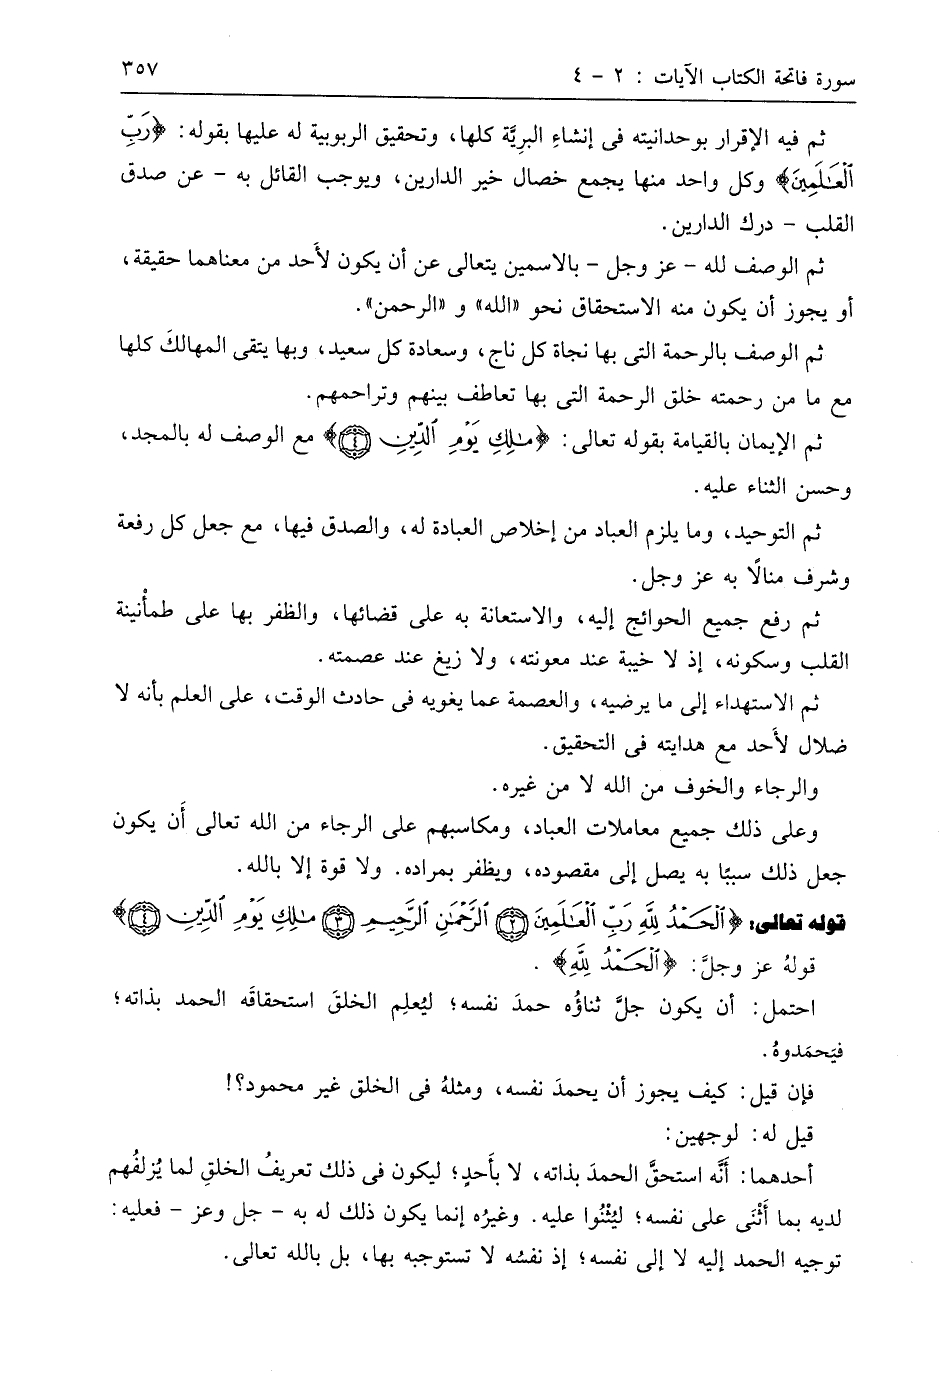 سورة فاتحة الكتاب الآيات : ٢ - ٤
٣٥٧
ثم فيه الإقرار بوحدانيته فى إنشاءِ البرِيَّة كلها، وتحقيق الربوبية له عليها بقوله: ﴿رَبِّ
ٱلْعَـٰلَمِينَ﴾ وكل واحد منها يجمع خصال خير الدارين، ويوجب القائل به - عن صدق
القلب - درك الدارين.
ثم الوصف لله - عز وجل - بالاسمين يتعالى عن أن يكون لأَحد من معناهما حقيقة،
أو يجوز أن يكون منه الاستحقاق نحو «الله» و «الرحمن».
ثم الوصف بالرحمة التى بها نجاة كل ناج، وسعادة كل سعيد، وبها يتقى المهالكَ كلها
مع ما من رحمته خلق الرحمة التى بها تعاطف بينهم وتراحمهم.
ثم الإيمان بالقيامة بقوله تعالى: ﴿مَـٰلِكِ يَوْمِ ٱلدِّينِ ۝٤﴾ مع الوصف له بالمجد،
وحسن الثناء عليه.
ثم التوحيد، وما يلزم العباد من إخلاص العبادة له، والصدق فيها، مع جعل كل رفعة
وشرف منالًا به عز وجل.
ثم رفع جميع الحوائج إليه، والاستعانة به على قضائها، والظفر بها على طمأْنينة
القلب وسكونه، إذ لا خيبة عند معونته، ولا زيغ عند عصمته.
ثم الاستهداء إلى ما يرضيه، والعصمة عما يغويه فى حادث الوقت، على العلم بأنه لا
ضلال لأَحد مع هدايته فى التحقيق.
والرجاء والخوف من الله لا من غيره.
وعلى ذلك جميع معاملات العباد، ومكاسبهم على الرجاء من الله تعالى أَن يكون
جعل ذلك سببًا به يصل إلى مقصوده، ويظفر بمراده. ولا قوة إلا بالله.
قوله تعالى: ﴿ٱلْحَـمْدُ لِلَّهِ رَبِّ ٱلْعَـٰلَمِينَ ۝٢ ٱلرَّحْمَـٰنِ ٱلرَّحِيمِ ۝٣ مَـٰلِكِ يَوْمِ ٱلدِّينِ ۝٤﴾
قولهُ عز وجلَّ: ﴿ٱلْحَـمْدُ لِلَّهِ﴾ .
احتمل: أن يكون جلَّ ثناؤُه حمدَ نفسه؛ ليُعلِم الخلقَ استحقاقَه الحمد بذاته؛
فيَحمَدوهُ.
فإن قيل: كيف يجوز أن يحمدَ نفسه، ومثلهُ فى الخلق غير محمود؟!
قيل له: لوجهين:
أحدهما: أَنَّه استحقَّ الحمدَ بذاته، لا بأَحدٍ؛ ليكون فى ذلك تعريفُ الخلقِ لما يُزلفُهم
لديه بما أَثْنَى على نفسه؛ ليُثْنُوا عليه. وغيرُه إنما يكون ذلك له به - جل وعز - فعليه:
توجيه الحمد إليه لا إلى نفسه؛ إذ نفسُه لا تستوجبه بها، بل بالله تعالى.